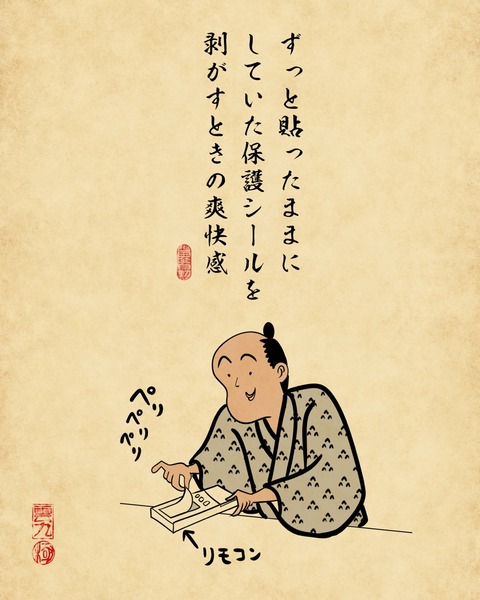 ずっと貼ったままに
していた保護シールを
剥がすときの爽快感
ペリ
ペリ
ペリ
リモコン